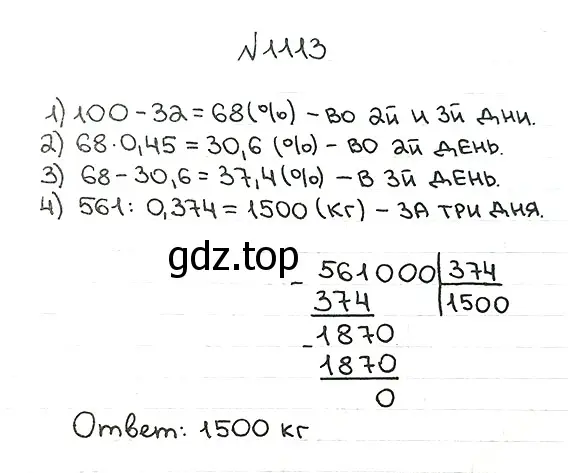 №1113
1) 100 - 32 = 68(%) - во 2й и 3й дни.
2) 68 · 0,45 = 30,6 (%) - во 2й день.
3) 68 - 30,6 = 37,4(%) - в 3й день.
4) 561 : 0,374 = 1500 (кг) - за три дня.
gdz.top
- 561000 | 374
374 | 1500
- 1870
1870
0
Ответ: 1500 кг